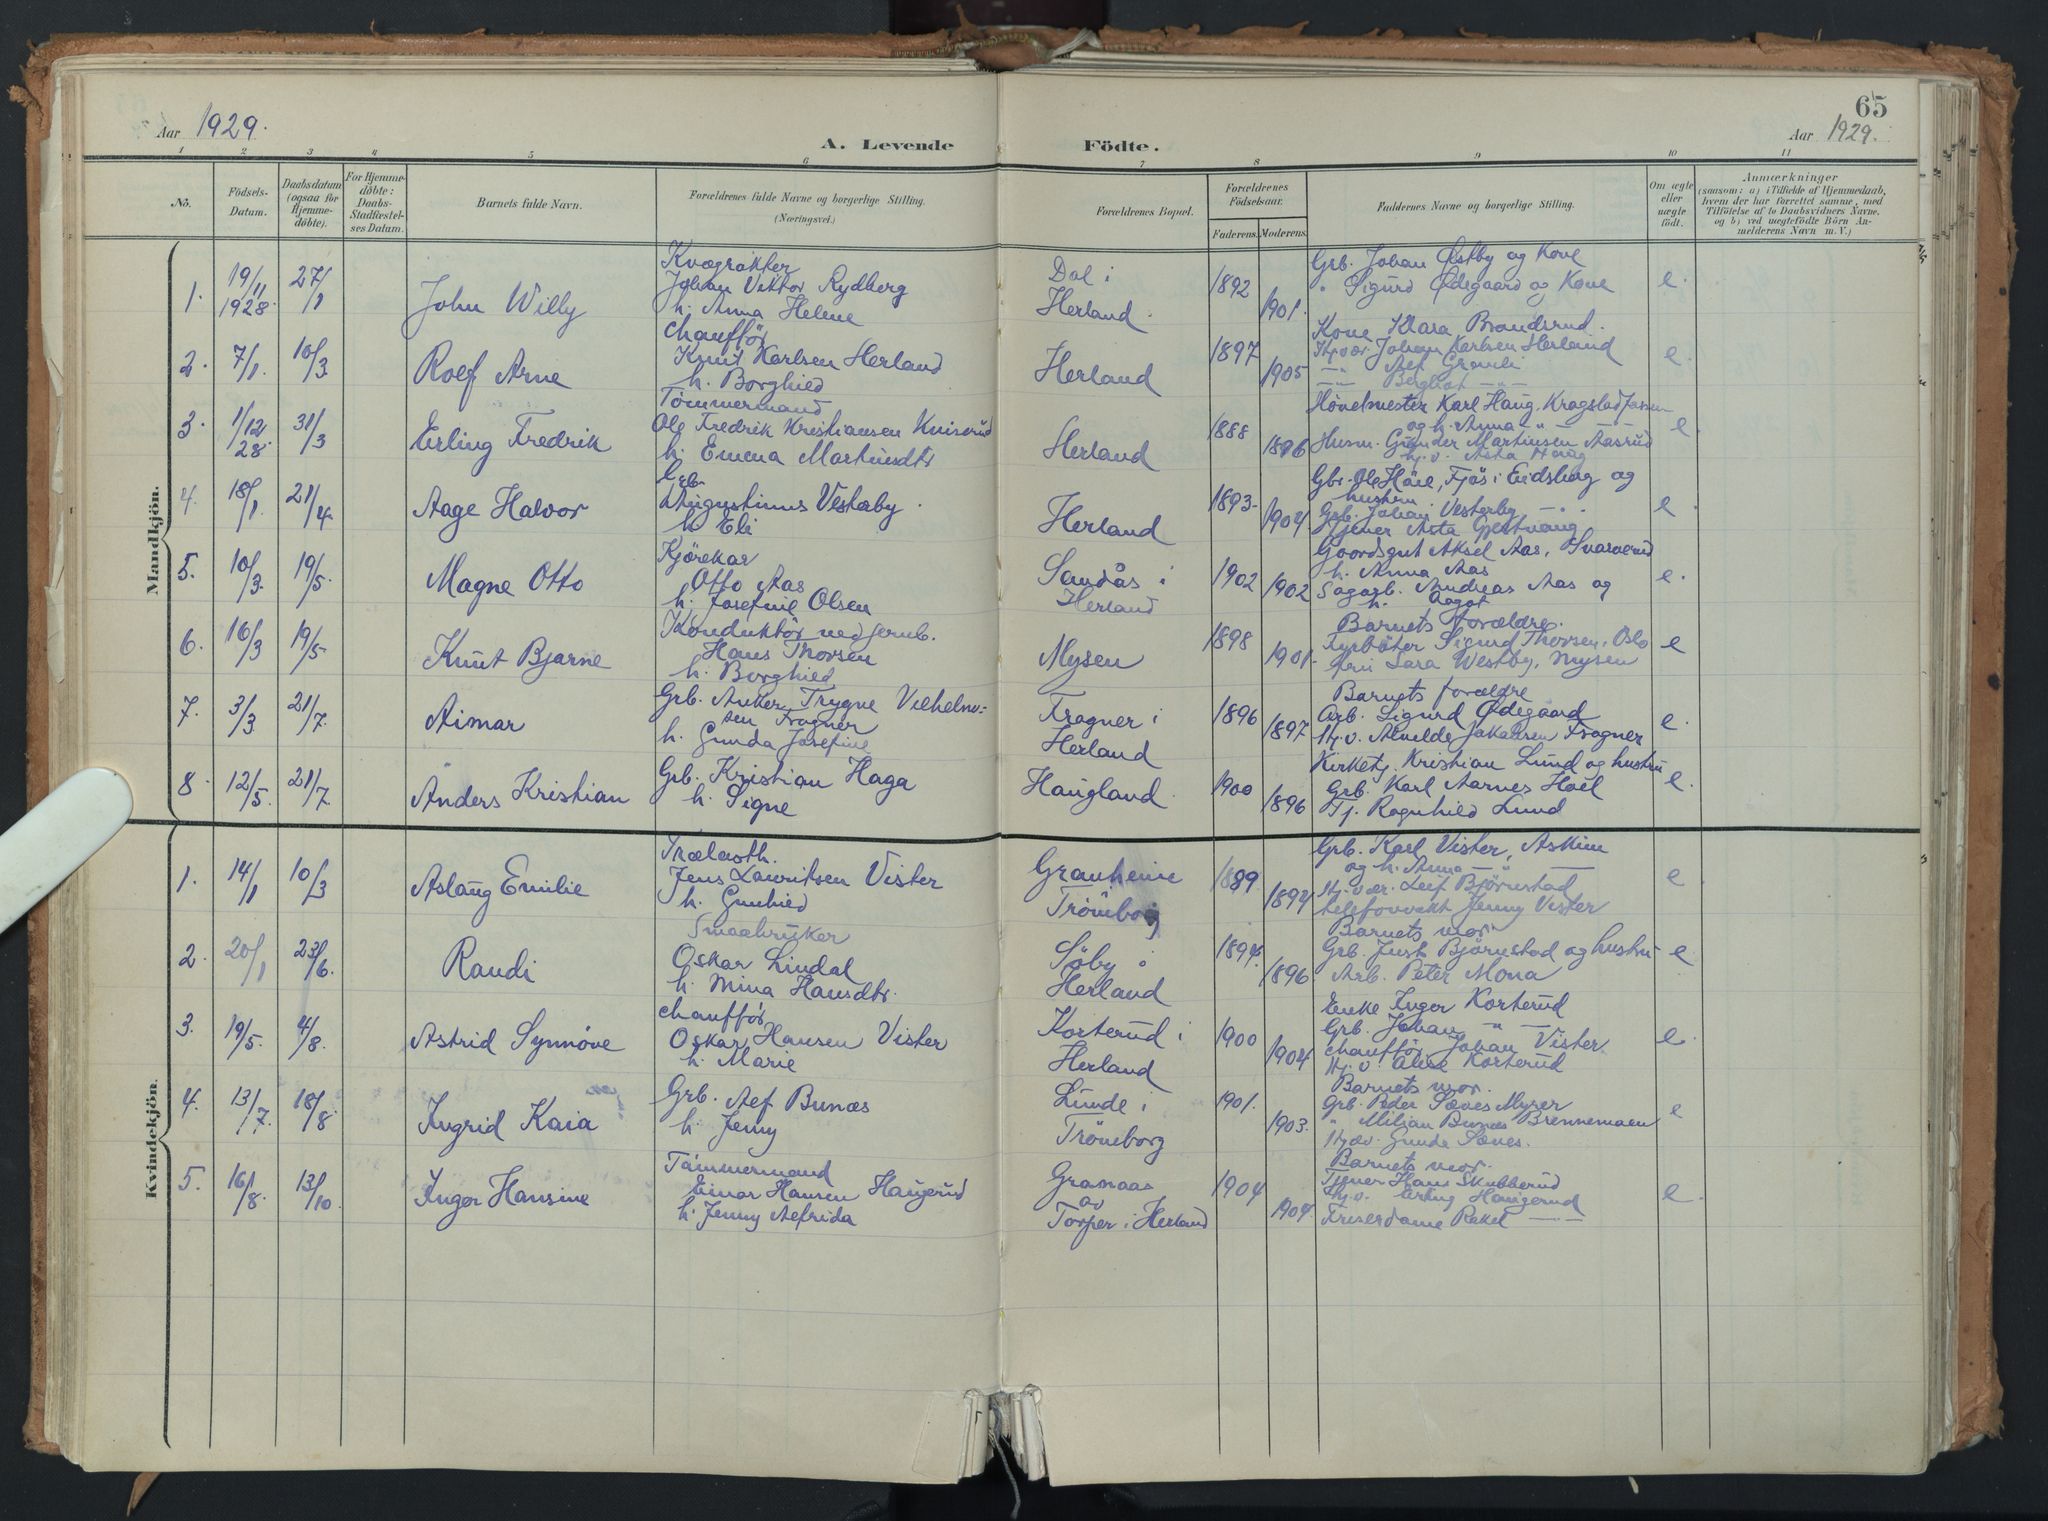 Aar 1929.
A. Levende Födte.
65
Aar 1929.
1 2 3 4 5 6 7 8 9 10 11
No.
Födsels-Datum.
Daabsdatum (ogsaa for Hjemme-döbte).
For Hjemme-döbte: Daabs-Stadfæstel-ses Datum.
Barnets fulde Navn.
Forældrenes fulde Navne og borgerlige Stilling. (Næringsvei.)
Forældrenes Bopæl.
Forældrenes Födselsaar.
Faderens. Moderens.
Faddernes Navne og borgerlige Stilling.
Om ægte eller uægte födt.
Anmærkninger
(saasom: a) i Tilfælde af Hjemmedaab, hvem der har forrettet samme, med Tilföielse af to Daabsvidners Navne, og b) ved uægtefödte Börn An-melderens Navn m. V.)
Mandkjön.
1. 19/11 1928. 27/1
John Willy
Kvægrøkter
Johan Viktor Rydberg
h. Anna Helene
Dal i
Herland
1892 1901.
Grb. Johan Østby og Kone
" Sigurd Ødegaard og Kone
e.
2. 7/1. 10/3.
Rolf Arne
Chauffør
Knut Karlsen Herland
h. Borghild
Herland
1897 1905
Kone Klara Brandsrud.
Johan Karlsen Herland
e.
3. 1/12 28. 31/3
Erling Fredrik
Tömmermand
Ole Fredrik Kristiansen
h. Emma Martinsdtr
Herland
1888 1896
Karl Haug,
og h. Anna
Husm. Gunder Martinsen Aasrud
Hj.v. Asta Haug
e.
4. 18/1. 21/4.
Aage Halvor
Grb.
Augustinus Vestaby
h. Eli
Herland
1893. 1904
Gbr. Ole Fjøs i Eidsberg og
hustru
Grb. Johan Vesterby
Asta
e.
5. 10/3. 19/5.
Magne Otto
Kjørekar
Otto Aas
h. Josefine Olsen
Sandås i
Herland
1902 1902
Gaardsgut Aksel Aas,
h. Anna Aas
Sagarb. Andreas Aas og
h. Aagot
e.
6. 16/3 19/5
Knut Bjarne
Konduktør ved jernb.
Hans Thorsen
h. Borghild
Mysen
1898 1901.
Barnets forældre.
Fyrbøter Sigurd Thorsen, Oslo
Lara Westby, Mysen
e
7. 3/3. 21/7.
Aimar
Grb. Anker Trygve Vilhelm-
sen Fragner
h. Gunda Josefine
Fragner i
Herland
1896 1897
Barnets forældre
Arb. Sigurd Ødegaard
Hj.v. Fragner
e.
8. 12/5. 21/7.
Anders Kristian
Grb. Kristian Haga
h. Signe
Haugland.
1900 1896
Kirketj. Kristian Lund og hustru
Grb. Karl Aarnes
Tj. Ragnhild Lund
e.
Kvindekjön.
1. 14/1 10/3
Aslaug Emilie
Trælasth.
Jens Lauritsen Vister
h. Gunhild
Granheim
Trömborg
1889 1894
Grb. Karl Vister, Askim
og h. Anna
Leif Bjørnstad
telefonvakt Jenny Vister
e.
2. 20/1 23/6.
Randi
Smaabruker
Oskar Lindal
h. Mina Hansdtr.
Søby i
Herland
1894. 1896
Barnets mor.
Grb. Just Bjørnstad og hustru
Arb. Peter Mona
e
3. 19/5. 4/8.
Astrid Synnöve
chauffør
Oskar Hansen Vister
h. Marie
Korterud i
Herland
1900 1904
Enke Inger Korterud
Grb. Johan "
chauffør Johan Vister
Hj.v. Korterud
e.
4. 13/7. 18/8
Ingrid Kaia
Grb. Alf Bunæs
h. Jenny
Lunde i
Trömborg
1901. 1903.
Barnets mor.
Grb. Peder
Bunæs Brennemoen
Gunda
e
5. 16/8 13/10
Inger Hansine
Tömmermand
Einar Hansen Haugerud
h. Jenny Alfrida
Granaas
av
Torper i Herland
1904 1904.
Barnets mor.
Hans Skubberud
Erling Haugerud
Friserdame Rakel
e.